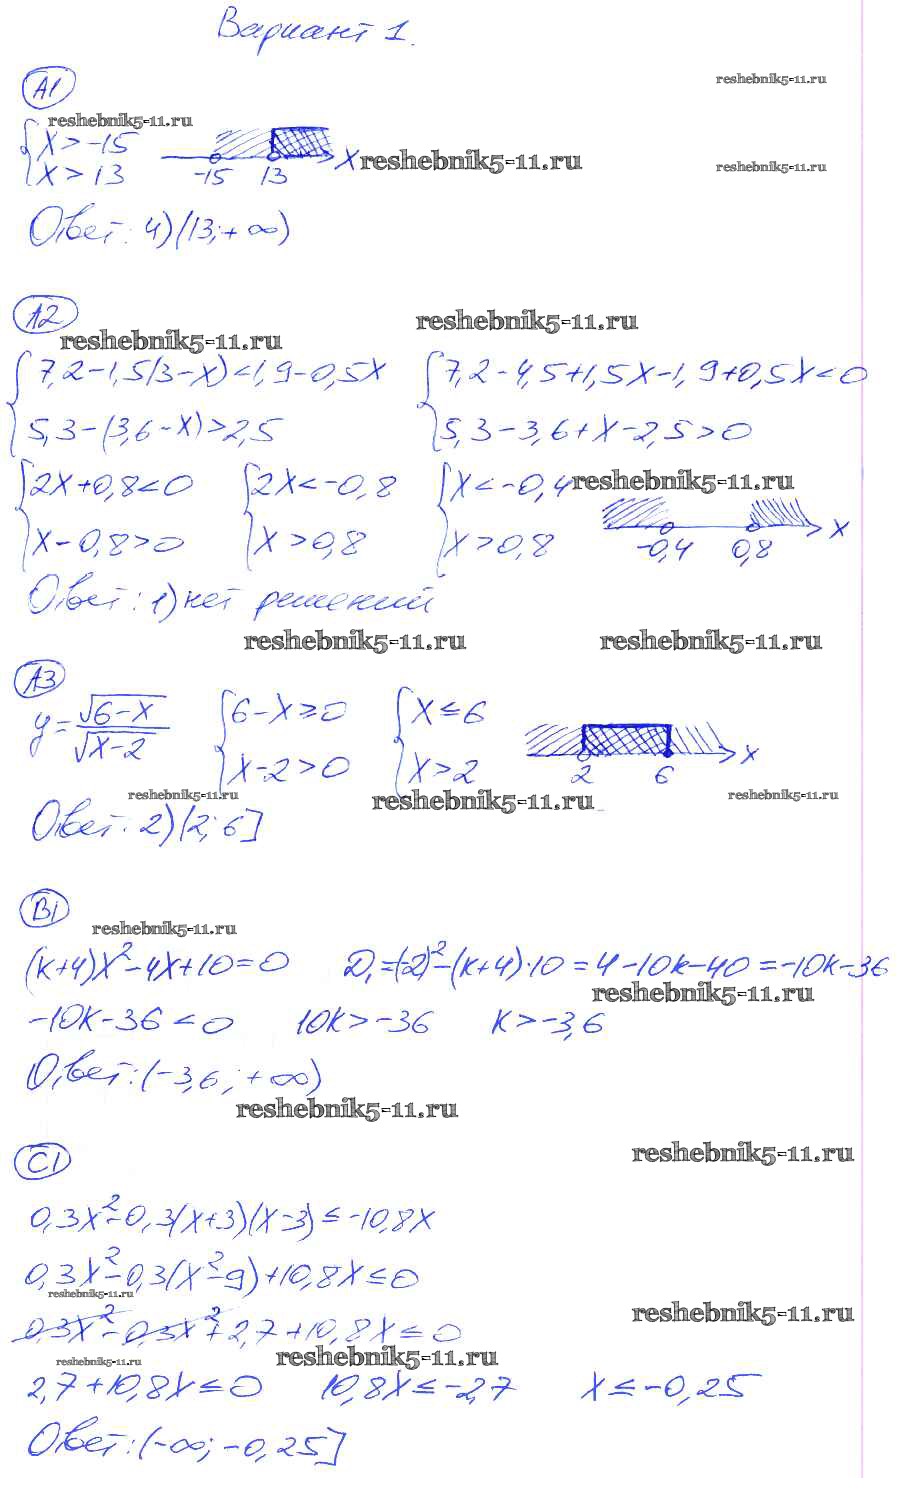 Вариант 1.
А1
reshebnik5-11.ru
reshebnik5-11.ru
{ x > -15
x > 13
-15 13 x
reshebnik5-11.ru
reshebnik5-11.ru
Ответ: 4) (13; +∞)
А2
reshebnik5-11.ru
reshebnik5-11.ru
{ 7,2-1,5(3-x)<1,9-0,5x { 7,2-4,5+1,5x-1,9+0,5x<0
5,3-(3,6-x)>2,5 5,3-3,6+x-2,5>0
{ 2x+0,8<0 { 2x<-0,8 { x<-0,4 reshebnik5-11.ru
x-0,8>0 x>0,8 x>0,8 -0,4 0,8 x
Ответ: 1) нет решений
reshebnik5-11.ru reshebnik5-11.ru
А3
y=√(6-x)/√(x-2) { 6-x≥0 { x≤6
x-2>0 x>2 2 6 x
reshebnik5-11.ru reshebnik5-11.ru reshebnik5-11.ru
Ответ: 2) (2; 6]
В1
reshebnik5-11.ru
(k+4)x²-4x+10=0 D₁=(-2)²-(k+4)·10=4-10k-40=-10k-36
reshebnik5-11.ru
-10k-36<0 10k>-36 k>-3,6
Ответ: (-3,6; +∞)
reshebnik5-11.ru
reshebnik5-11.ru
С1
0,3x²-0,3(x+3)(x-3)≤-10,8x
0,3x²-0,3(x²-9)+10,8x≤0
reshebnik5-11.ru
reshebnik5-11.ru
0,3x²-0,3x²+2,7+10,8x≤0
reshebnik5-11.ru reshebnik5-11.ru
2,7+10,8x≤0 10,8x≤-2,7 x≤-0,25
Ответ: (-∞; -0,25]